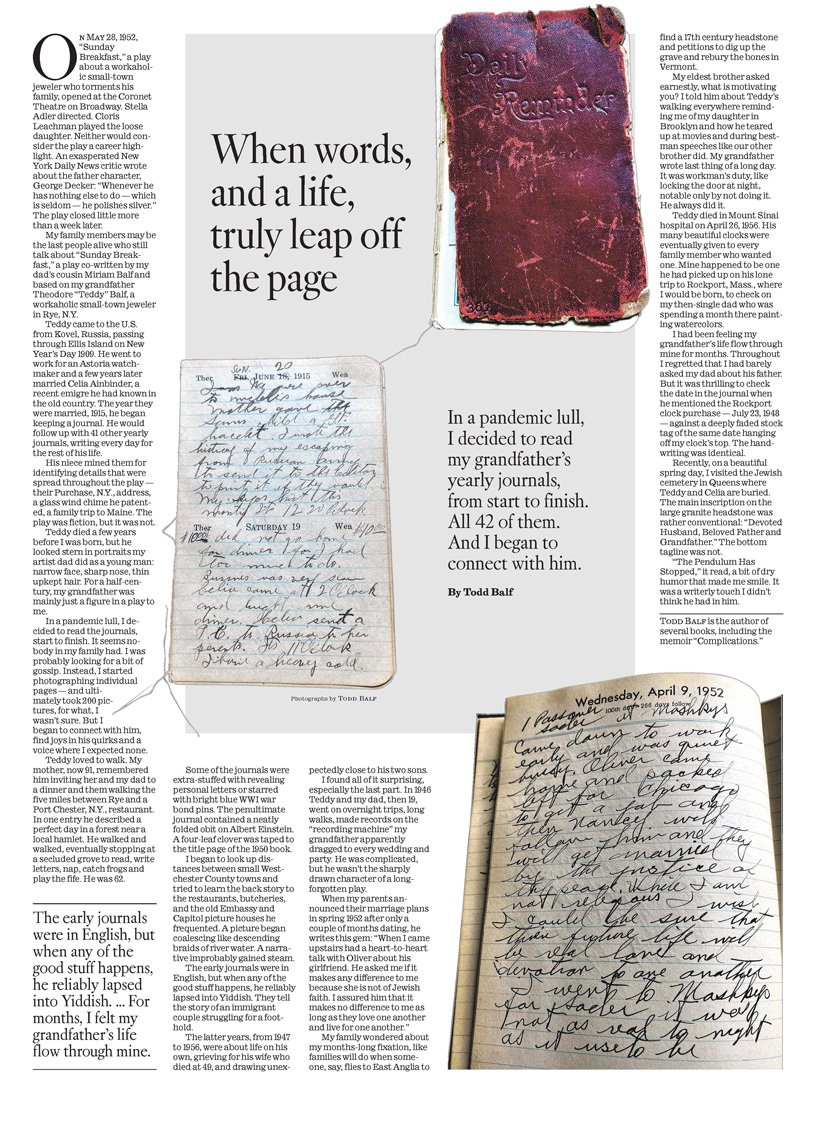 ON MAY 28, 1952,
“Sunday
Breakfast,” a play
about a workahol-
ic small-town
jeweler who torments his
family, opened at the Coronet
Theatre on Broadway. Stella
Adler directed. Cloris
Leachman played the loose
daughter. Neither would con-
sider the play a career high-
light. An exasperated New
York Daily News critic wrote
about the father character,
George Decker: “Whenever he
has nothing else to do — which
is seldom — he polishes silver.”
The play closed little more
than a week later.
My family members may be
the last people alive who still
talk about “Sunday Break-
fast,” a play co-written by my
dad’s cousin Miriam Balf and
based on my grandfather
Theodore “Teddy” Balf, a
workaholic small-town jeweler
in Rye, N.Y.
Teddy came to the U.S.
from Kovel, Russia, passing
through Ellis Island on New
Year’s Day 1909. He went to
work for an Astoria watch-
maker and a few years later
married Celia Ainbinder, a
recent emigre he had known in
the old country. The year they
were married, 1915, he began
keeping a journal. He would
follow up with 41 other yearly
journals, writing every day for
the rest of his life.
His niece mined them for
identifying details that were
spread throughout the play —
their Purchase, N.Y., address,
a glass wind chime he patent-
ed, a family trip to Maine. The
play was fiction, but it was not.
Teddy died a few years
before I was born, but he
looked stern in portraits my
artist dad did as a young man:
narrow face, sharp nose, thin
upkept hair. For a half-cen-
tury, my grandfather was
mainly just a figure in a play to
me.
In a pandemic lull, I de-
cided to read the journals,
start to finish. It seems no-
body in my family had. I was
probably looking for a bit of
gossip. Instead, I started
photographing individual
pages — and ulti-
mately took 200 pic-
tures, for what, I
wasn’t sure. But I
began to connect with him,
find joys in his quirks and a
voice where I expected none.
Teddy loved to walk. My
mother, now 91, remembered
him inviting her and my dad to
a dinner and them walking the
five miles between Rye and a
Port Chester, N.Y., restaurant.
In one entry he described a
perfect day in a forest near a
local hamlet. He walked and
walked, eventually stopping at
a secluded grove to read, write
letters, nap, catch frogs and
play the fife. He was 62.
The early journals
were in English, but
when any of the
good stuff happens,
he reliably lapsed
into Yiddish. ... For
months, I felt my
grandfather’s life
flow through mine.
When words,
and a life,
truly leap off
the page
Daily
Reminder
In a pandemic lull,
I decided to read
my grandfather’s
yearly journals,
from start to finish.
All 42 of them.
And I began to
connect with him.
By Todd Balf
SUN. 20
Ther FRI. JUNE 18, 1915 Wea
We were over
to house
mother gave
a gift
bracelet. I wrote the
history of my escaping
from Russian Army
to send it to the editor
to print it if they want
Ther SATURDAY 19 Wea
did not go home
for dinner for I had
too much to do.
Business was very slow
Celia came at 2 Oclock
and brought me
dinner. Celia send a
P.C. to Russia to her
parents. 11 Oclock
I have a heavy cold.
Photographs by TODD BALF
Some of the journals were
extra-stuffed with revealing
personal letters or starred
with bright blue WWI war
bond pins. The penultimate
journal contained a neatly
folded obit on Albert Einstein.
A four-leaf clover was taped to
the title page of the 1950 book.
I began to look up dis-
tances between small West-
chester County towns and
tried to learn the back story to
the restaurants, butcheries,
and the old Embassy and
Capitol picture houses he
frequented. A picture began
coalescing like descending
braids of river water. A narra-
tive improbably gained steam.
The early journals were in
English, but when any of the
good stuff happens, he reliably
lapsed into Yiddish. They tell
the story of an immigrant
couple struggling for a foot-
hold.
The latter years, from 1947
to 1956, were about life on his
own, grieving for his wife who
died at 49, and drawing unex-
pectedly close to his two sons.
I found all of it surprising,
especially the last part. In 1946
Teddy and my dad, then 19,
went on overnight trips, long
walks, made records on the
“recording machine” my
grandfather apparently
dragged to every wedding and
party. He was complicated,
but he wasn’t the sharply
drawn character of a long-
forgotten play.
When my parents an-
nounced their marriage plans
in spring 1952 after only a
couple of months dating, he
writes this gem: “When I came
upstairs had a heart-to-heart
talk with Oliver about his
girlfriend. He asked me if it
makes any difference to me
because she is not of Jewish
faith. I assured him that it
makes no difference to me as
long as they love one another
and live for one another.”
My family wondered about
my months-long fixation, like
families will do when some-
one, say, flies to East Anglia to
find a 17th century headstone
and petitions to dig up the
grave and rebury the bones in
Vermont.
My eldest brother asked
earnestly, what is motivating
you? I told him about Teddy’s
walking everywhere remind-
ing me of my daughter in
Brooklyn and how he teared
up at movies and during best-
man speeches like our other
brother did. My grandfather
wrote last thing of a long day.
It was workman’s duty, like
locking the door at night,
notable only by not doing it.
He always did it.
Teddy died in Mount Sinai
hospital on April 26, 1956. His
many beautiful clocks were
eventually given to every
family member who wanted
one. Mine happened to be one
he had picked up on his lone
trip to Rockport, Mass., where
I would be born, to check on
my then-single dad who was
spending a month there paint-
ing watercolors.
I had been feeling my
grandfather’s life flow through
mine for months. Throughout
I regretted that I had barely
asked my dad about his father.
But it was thrilling to check
the date in the journal when
he mentioned the Rockport
clock purchase — July 23, 1948
— against a deeply faded stock
tag of the same date hanging
off my clock’s top. The hand-
writing was identical.
Recently, on a beautiful
spring day, I visited the Jewish
cemetery in Queens where
Teddy and Celia are buried.
The main inscription on the
large granite headstone was
rather conventional: “Devoted
Husband, Beloved Father and
Grandfather.” The bottom
tagline was not.
“The Pendulum Has
Stopped,” it read, a bit of dry
humor that made me smile. It
was a writerly touch I didn’t
think he had in him.
TODD BALF is the author of
several books, including the
memoir “Complications.”
Wednesday, April 9, 1952
100th day 266 days follow
1 Passover at Mashkys
Came down to work
early and was quiet
Oliver came
home and packed
left for Chicago
to get a flat and
then Nancy will
follow him and they
will get married
by the justice of
the peace. While I am
not religious I wish
I could be sure that
their future life will
be real love and
devotion to one another
I went to Mashkys
for it was
not as real to night
as it use to be